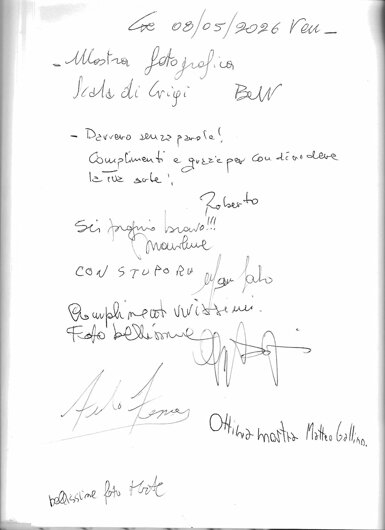 08/05/2026 Ven
- Mostra fotografica
Scala di Grigi B&W
- Davvero senza parole!
Complimenti e grazie per condividere
la Tua arte!
Roberto
Sei proprio bravo!!!
CON STUPORE
Complimenti vivissimi.
Foto bellissime
Ottima mostra Matteo Gallino.
bellissime foto